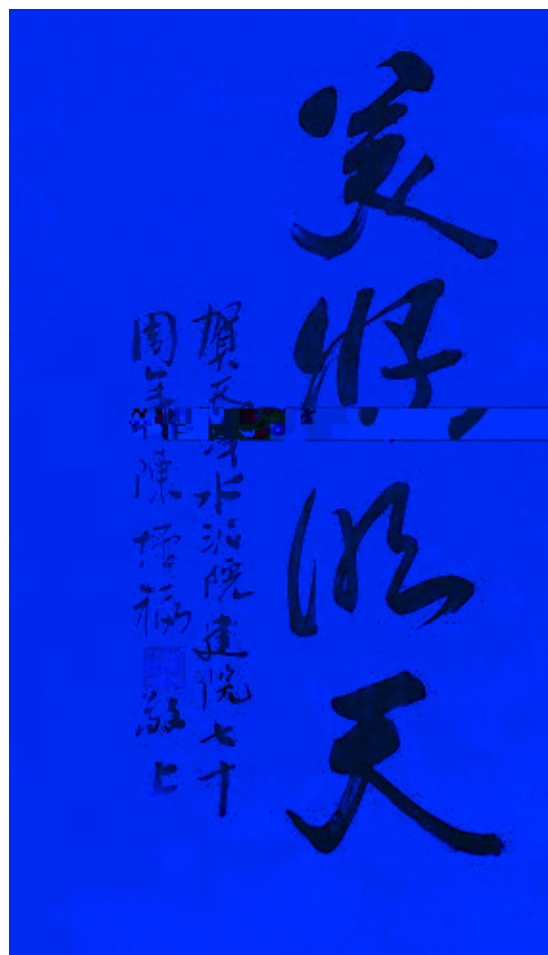 美好明天
賀天津水泥院建院七十
周年陳增福敬上